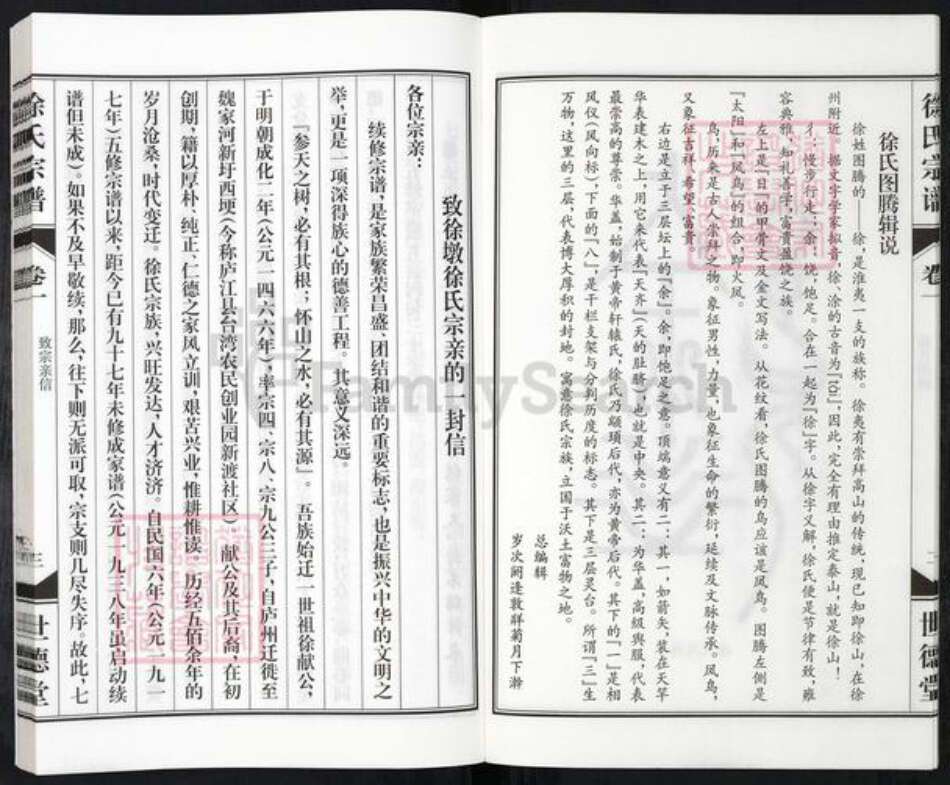 徐氏宗谱
卷一
二
世德堂
徐氏图腾辑说
徐姓图腾的 徐,是淮夷一支的族称。徐夷有崇拜高山的传统,现已知即徐山,在徐
州附近。据文字学家拟音,徐、涂的古音为因此,完全有理由推定泰山,就是徐山!
彳:慢步行走;余:饶,饱足。合在一起为『徐』字。从徐字义解,徐氏便是节律有致,雍
容典雅,知礼善学,富贵盈饶之族。
左上是『日』的甲骨文及金文写法。从花纹看,徐氏图腾的鸟应该是凤鸟。图腾左侧是
『太阳』和『凤鸟』的组合,即火凤。
鸟,历来是古人崇拜之物。象征男性,力量,也象征生命的繁衍,延续及文脉传承。凤鸟,
又象征吉祥、希望、富贵。
右边是立于三层坛上的『余』。余,即饱足之意。顶端意义有二:其一,如箭矢,装在天竿
华表建木之上,用它来代表『天齐』(天的肚脐),也就是中央。其二:为华盖,高级舆服,代表
最崇高的尊崇。华盖,始制于黄帝轩辕氏,徐氏乃颛顼后代,亦为黄帝后代。其下的『一』是相
风仪(风向标),下面的『八』,是干栏支架与分判历度的标志。其下是三层灵台。所谓『三』生
万物,这里的三层,代表博大厚积的封地。寓意徐氏宗族,立国于沃土富物之地。
总编辑
岁次阏逢敦牂菊月下澣
致徐墩徐氏宗亲的一封信
各位宗亲:
续修宗谱,是家族繁荣昌盛、团结和谐的重要标志,也是振兴中华的文明之
举,更是一项深得族心的德善工程。其意义深远。
『参天之树,必有其根;怀山之水,必有其源』。吾族始迁一世祖徐献公,
于明朝成化二年(公元一四六六年),率宗四、宗八、宗九公三子,自庐州迁徙至
魏家河新圩西埂(今称庐江县台湾农民创业园新渡社区)。献公及其后裔,在初
创期,籍以厚朴、纯正、仁德之家风立训,艰苦兴业,惟耕惟读。历经五佰余年的
岁月沧桑,时代变迁。徐氏宗族,兴旺发达,人才济济。自民国六年(公元一九一
七年)五修宗谱以来,距今已有九十七年未修成家谱(公元一九三八年虽启动续
谱但未成)。如果不及早敬续,那么,往下则无派可取,宗支则几尽失序。故此,七
徐氏宗谱
卷一
致宗亲信
三
世德堂
FamilySearch